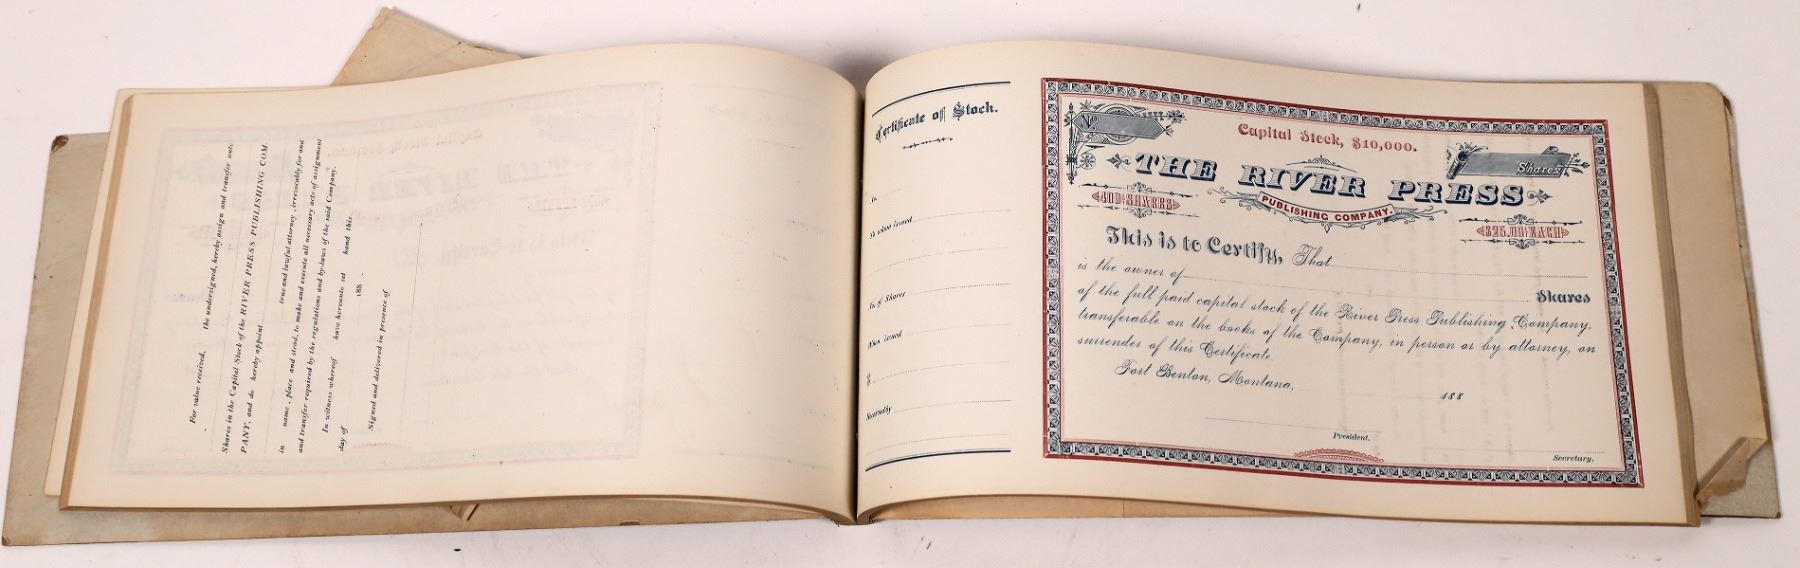 For value received, the undersigned, hereby assign and transfer unto
Shares in the Capital Stock of the RIVER PRESS PUBLISHING COM-
PANY, and do hereby appoint
in name, place and stead, to make and execute all necessary acts of assignment true and lawful attorney, irrevocably for and
and transfer required by the regulations and by-laws of the said Company.
In witness whereof have hereunto set hand this
day of 188 .
Signed and delivered in presence of
Certificate of Stock.
To whom issued
No. of Shares
When issued
$
No.
Capital Stock, $10,000.
Shares
THE RIVER PRESS
PUBLISHING COMPANY.
400 SHARES
$25.00 EACH
This is to Certify, That
is the owner of
Shares
of the full paid capital stock of the River Press Publishing Company,
transferable on the books of the Company, in person or by attorney, on
surrender of this Certificate
Fort Benton, Montana, 188
President.
Secretary.